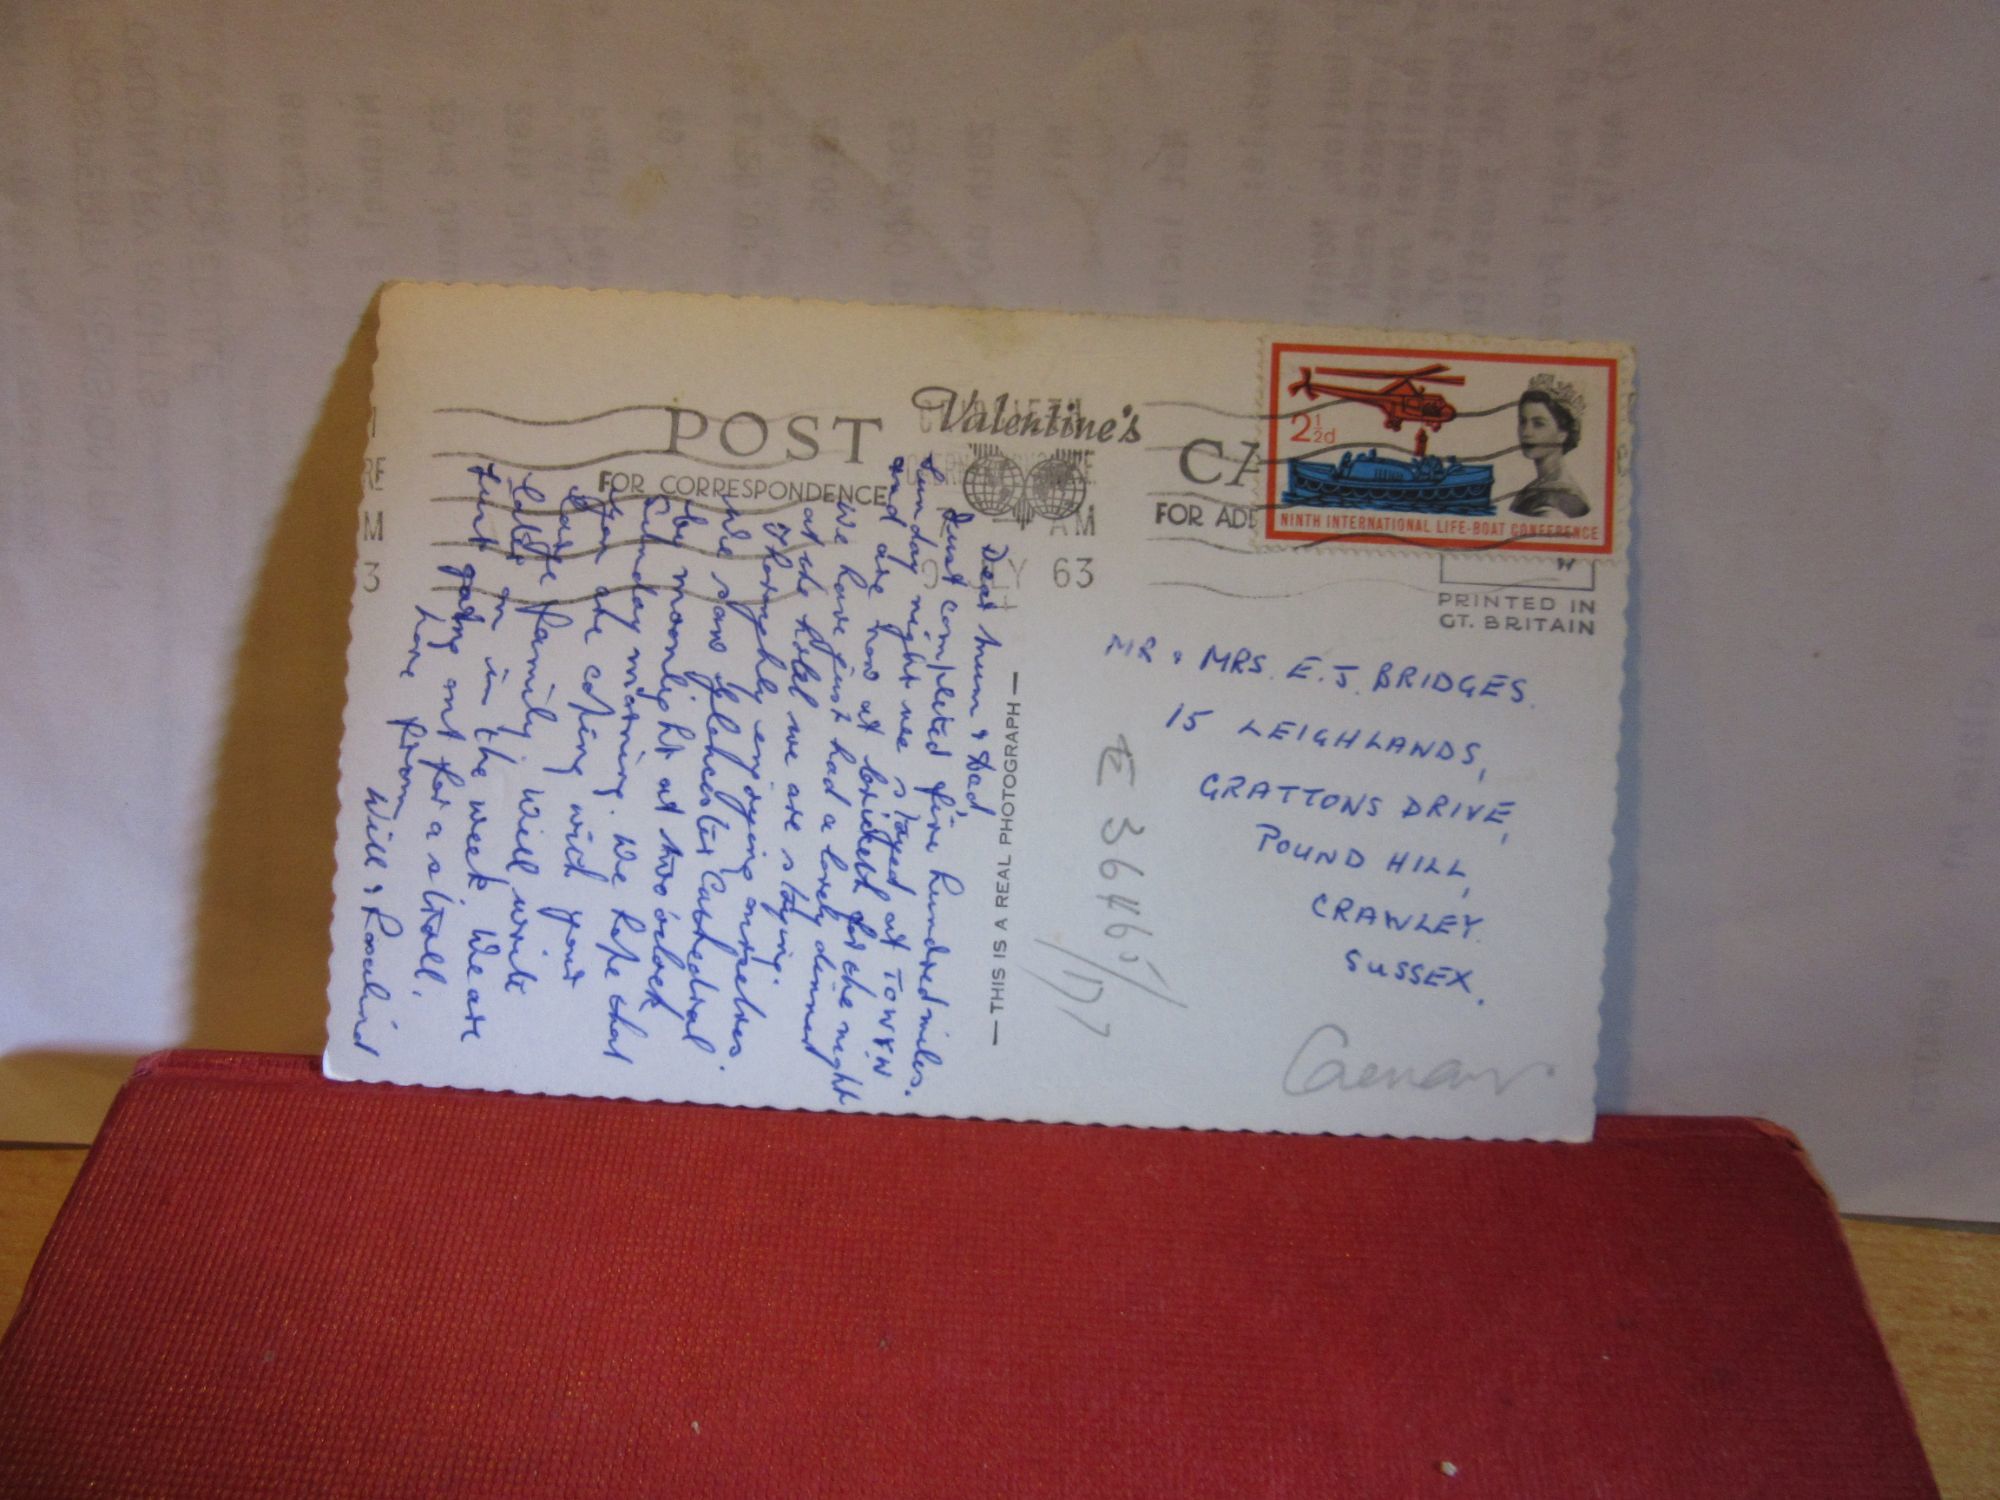 POST CA
Valentine's
FOR CORRESPONDENCE
FOR ADD
AM
JLY 63
RE
M
3
2½d
NINTH INTERNATIONAL LIFE-BOAT CONFERENCE
PRINTED IN
GT. BRITAIN
— THIS IS A REAL PHOTOGRAPH —
Dear Mum & Dad,
Just completed five hundred miles.
Sunday night we stayed at TOWYN
and are now at for the night
We have just had a lovely dinner
at the hotel we are staying.
Thoroughly enjoying ourselves.
We saw Gloucester Cathedral
by moonlight at two oclock
Sunday morning. We hope that
you are coping with your
large family. Will write
later on in the week. We are
just going out for a stroll.
Love from
Will & Rosalind
MR & MRS. E. J. BRIDGES.
15 LEIGHLANDS,
GRATTONS DRIVE,
POUND HILL,
CRAWLEY.
SUSSEX.